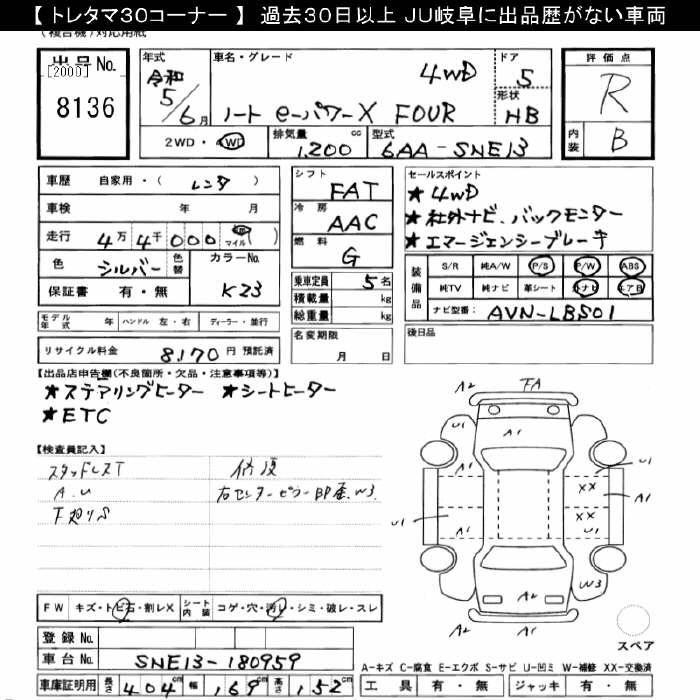 【 トレタマ30コーナー 】 過去30日以上 JU岐阜に出品歴がない車両
(複合機)対応用紙
出品No.
[2000]
8136
年式
令和
5/6月
車名・グレード
4WD
ノート e-パワーX FOUR
ドア
5
形状
HB
2WD・4WD
排気量
1,200 cc
型式
6AA-SNE13
評価点
R
内装
B
車歴 自家用・( レンタ )
車検 年 月
走行 4万4千000 km マイル ( )
色 シルバー 色替
カラーNo.
K23
保証書 有・無
モデル年式 年 ハンドル 左・右 ディーラー・並行
リサイクル料金 8,170 円 預託済
シフト
FAT
冷房
AAC
燃料
G
乗車定員 5 名
積載量 kg
総重量 kg
名変期限
月 日
セールスポイント
★ 4WD
★ 社外ナビ、バックモニター
★ エマージェンシーブレーキ
装備品
S/R 純A/W P/S P/W ABS
純TV 純ナビ 革シート 外ナビ エアB
ナビ型番: AVN-LBS01
後日品
【出品店申告欄(不良箇所・欠品・注意事項等)】
★ステアリングヒーター ★シートヒーター
★ETC
【検査員記入】
スタッドレスT
A.U
下廻りS
修復
右センターピラー W3
FW キズ・トビ石・割レX
シート内装 コゲ・穴・汚レ・シミ・破レ・スレ
登録No.
車台No. SNE13-180959
車庫証明用 長さ 404cm 幅 169cm 高さ 152cm
A2 FA
U1 A1 U1
A1 A1
XX
U1 XX
A1
A2 W3
A2 A1
スペア
A-キズ C-腐食 E-エクボ S-サビ U-凹ミ W-補修 XX-交換済
工具 有・無 ジャッキ 有・無